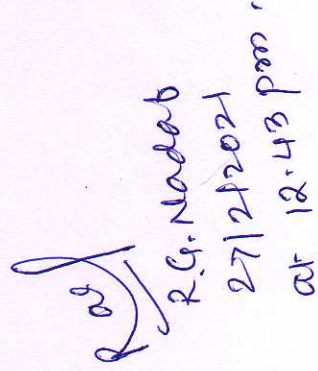 R.G. Nadab
27/2/2021
at 12.43 pm.